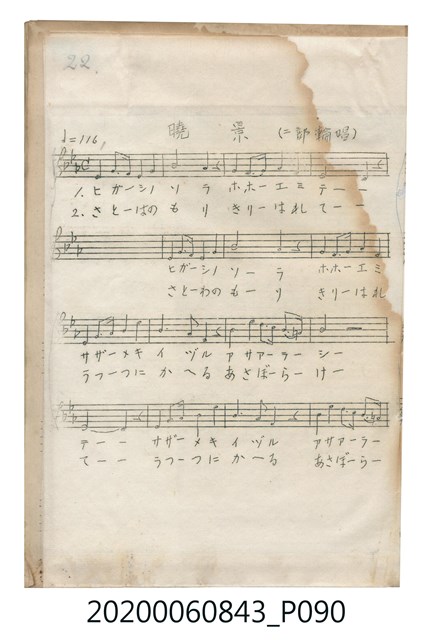 22.
♩=116,
曉 景 (二部輪唱)
1. ヒガーシノ ソ ラ ホホーエミ テー ー
2. さとーはの も り きりーはれ てー ー
ヒガーシノ ソー ラ ホホーエミ
さとーわの もー り きりーはれ
サザーメキ イ ヅル アサアーラー シー
うつーつに か へる あさぼーらー けー
テー ー サザーメキ イ ヅル アサアーラー
てー ー うつーつに か へる あさぼーらー
20200060843_P090